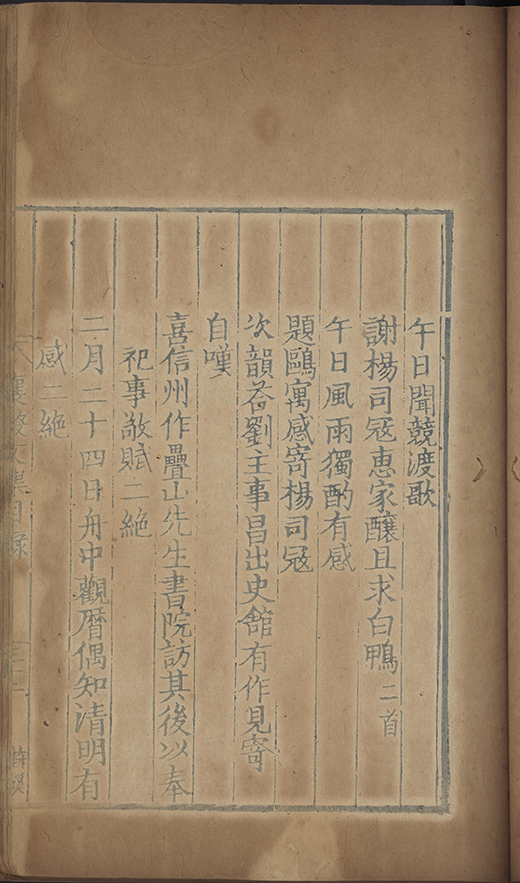 午日聞競渡歌
謝楊司冦惠家釀且求白鴨二首
午日風雨獨酌有感
題鷗寓感寄楊司冦
次韻荅劉主事昌出史舘有作見寄
自嘆
喜信州作疊山先生書院訪其後以奉
祀事敬賦二絶
二月二十四日舟中觀曆偶知清明有
感二絶
文集目録